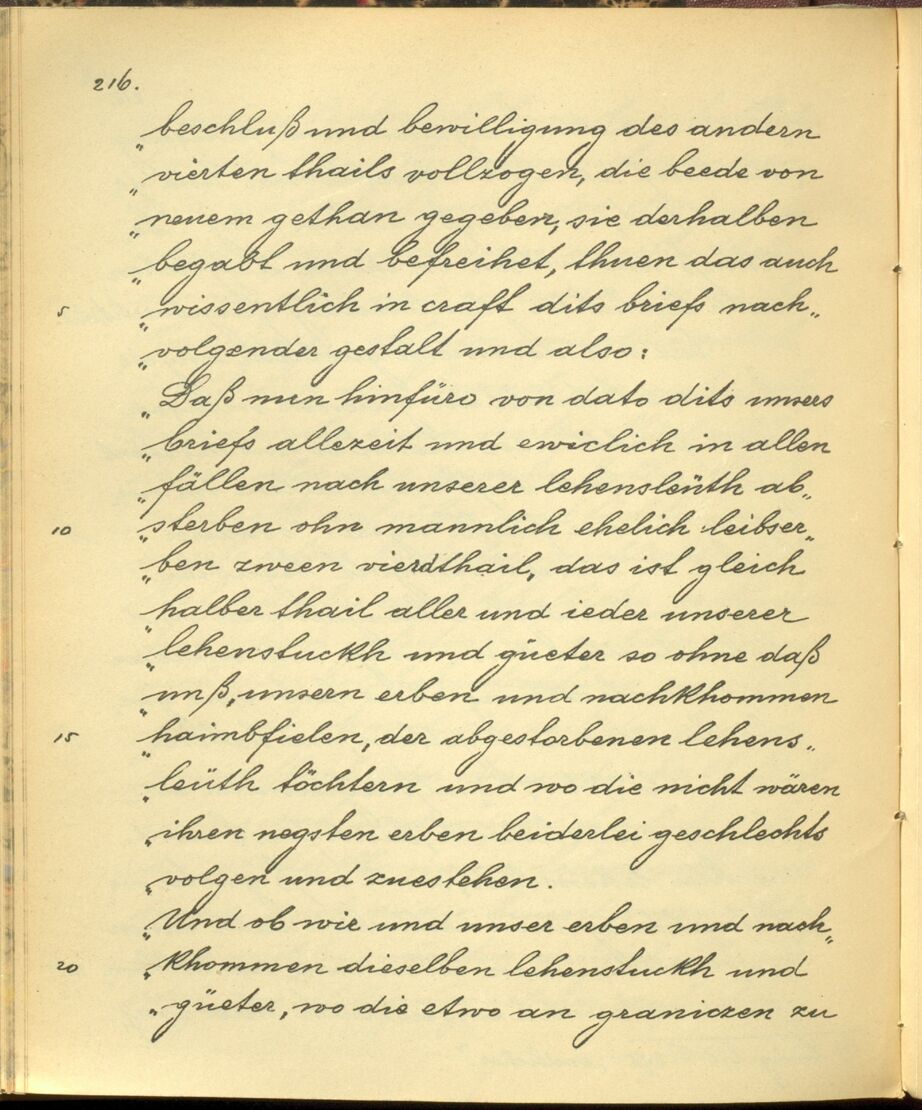 216.
„beschluß und bewilligung des andern
„vierten thails vollzogen, die beede von
„neuem gethan gegeben, sie derhalben
„begabt und befreihet, thuen das auch
5 „wissentlich in craft dits briefs nach„
„volgender gestalt und also:
„Daß nun hinfüro von dato dits unsers
„briefs allezeit und ewiclich in allen
„fällen nach unserer lehensleüth ab„
10 „sterben ohn mannlich ehelich leibser„
„ben zween vierdthail, das ist gleich
„halber thail aller und ieder unserer
„lehenstuckh und güeter so ohne daß
„unß, unsern erben und nachkhommen
15 „haimbfielen, der abgestorbenen lehens„
„leüth töchtern und wo die nicht wären
„ihren negsten erben beiderlei geschlechts
„volgen und zuestehen.
„Und ob wir und unser erben und nach„
20 „khommen dieselben lehenstuckh und
„güeter, wo die etwo an graniczen zu